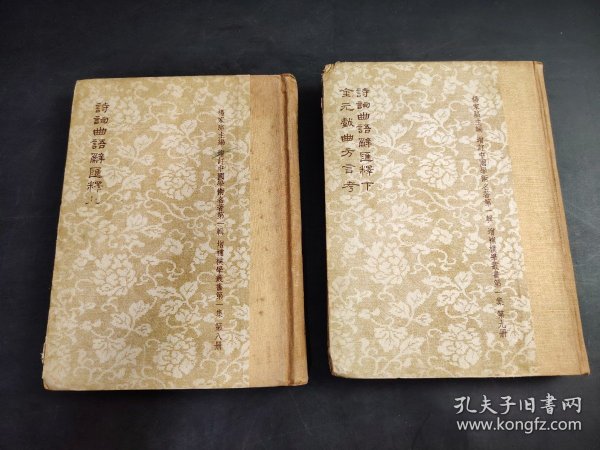 詩詞曲語辭匯釋上
楊家駱主編 增訂中國學術名著第一輯 增補樸學叢書第一集 第八冊
詩詞曲語辭匯釋下
金元戲曲方言考
楊家駱主編 增訂中國學術名著第一輯 增補樸學叢書第一集 第九冊
孔夫子旧书网
www.kongfz.com